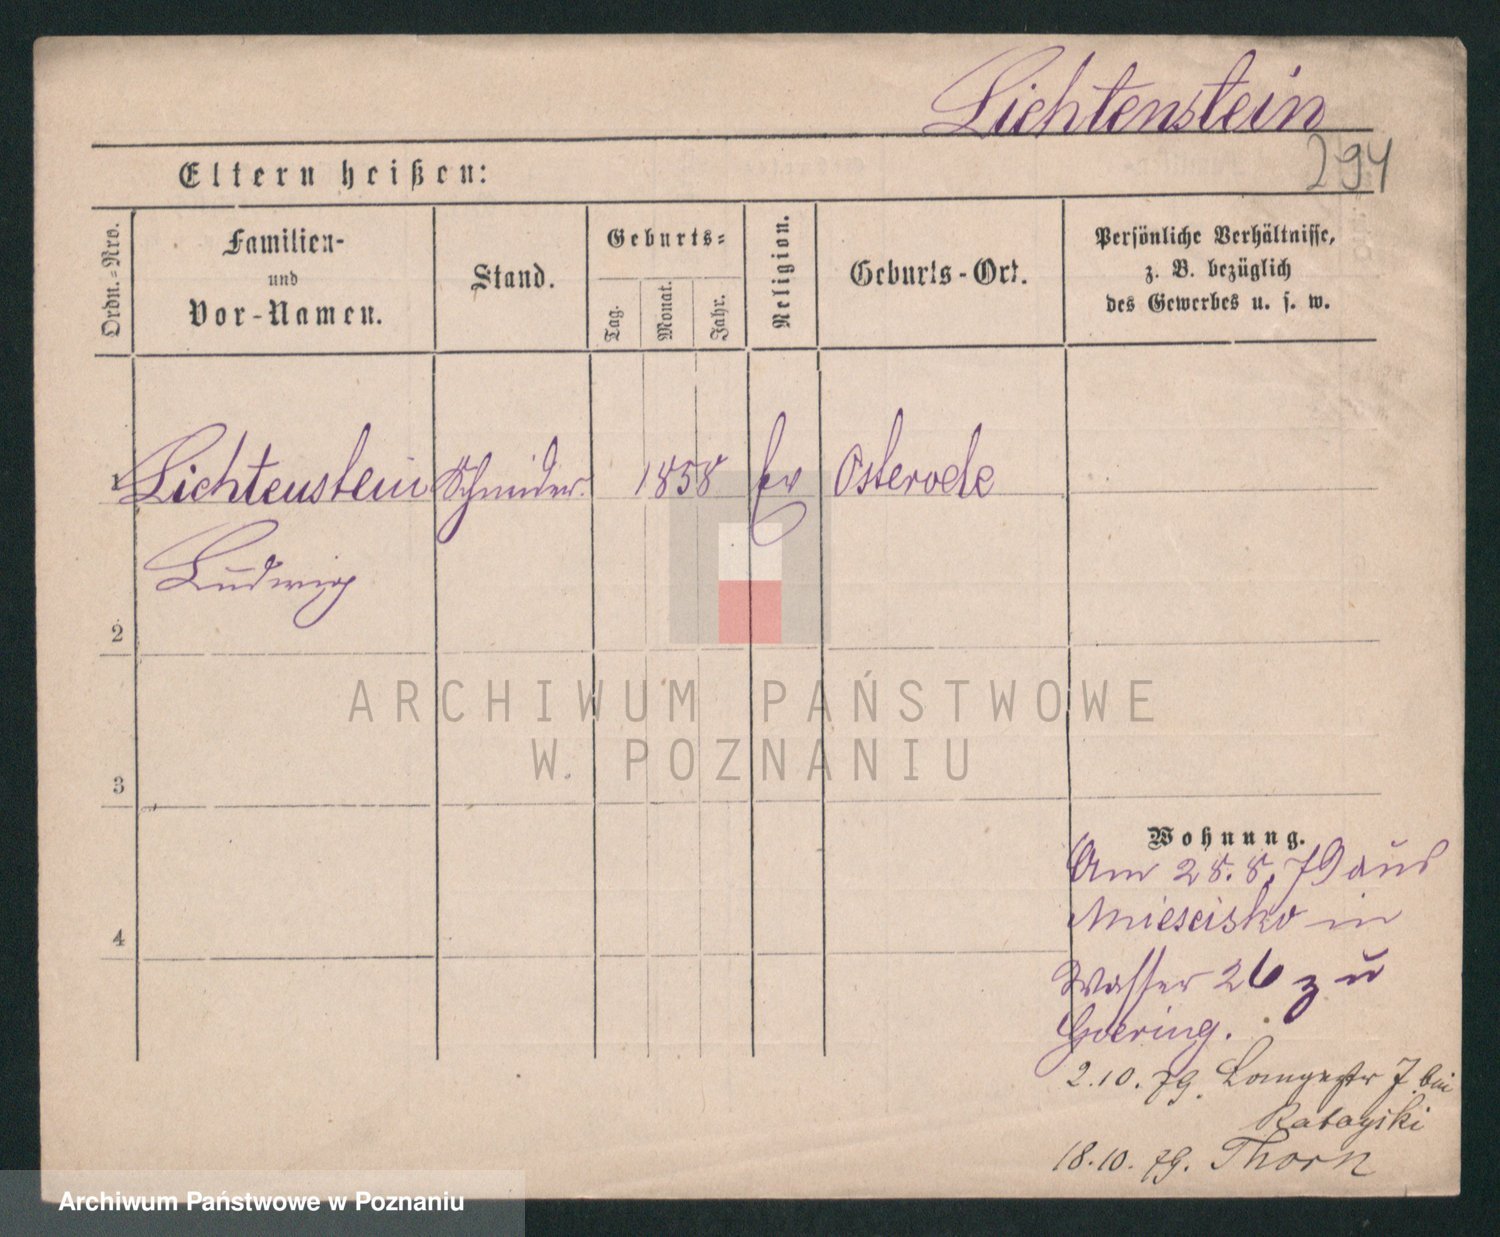 Lichtenstein
294
Eltern heißen:
Ordn.=Nro.
Familien-
und
Vor-Namen.
Stand.
Geburts=
Tag.
Monat.
Jahr.
Religion.
Geburts-Ort.
Persönliche Verhältnisse,
z. B. bezüglich
des Gewerbes u. s. w.
1 Lichtenstein Schneider. 1858 Ev Osterode
Ludwig
2
ARCHIWUM PAŃSTWOWE
W. POZNANIU
3
Wohnung.
Am 28.8.79 aus
Miescisko in
4
Wasser 26 zu
Goering.
2.10.79. Langestr 7. bei
18.10.79. Thorn
Archiwum Państwowe w Poznaniu